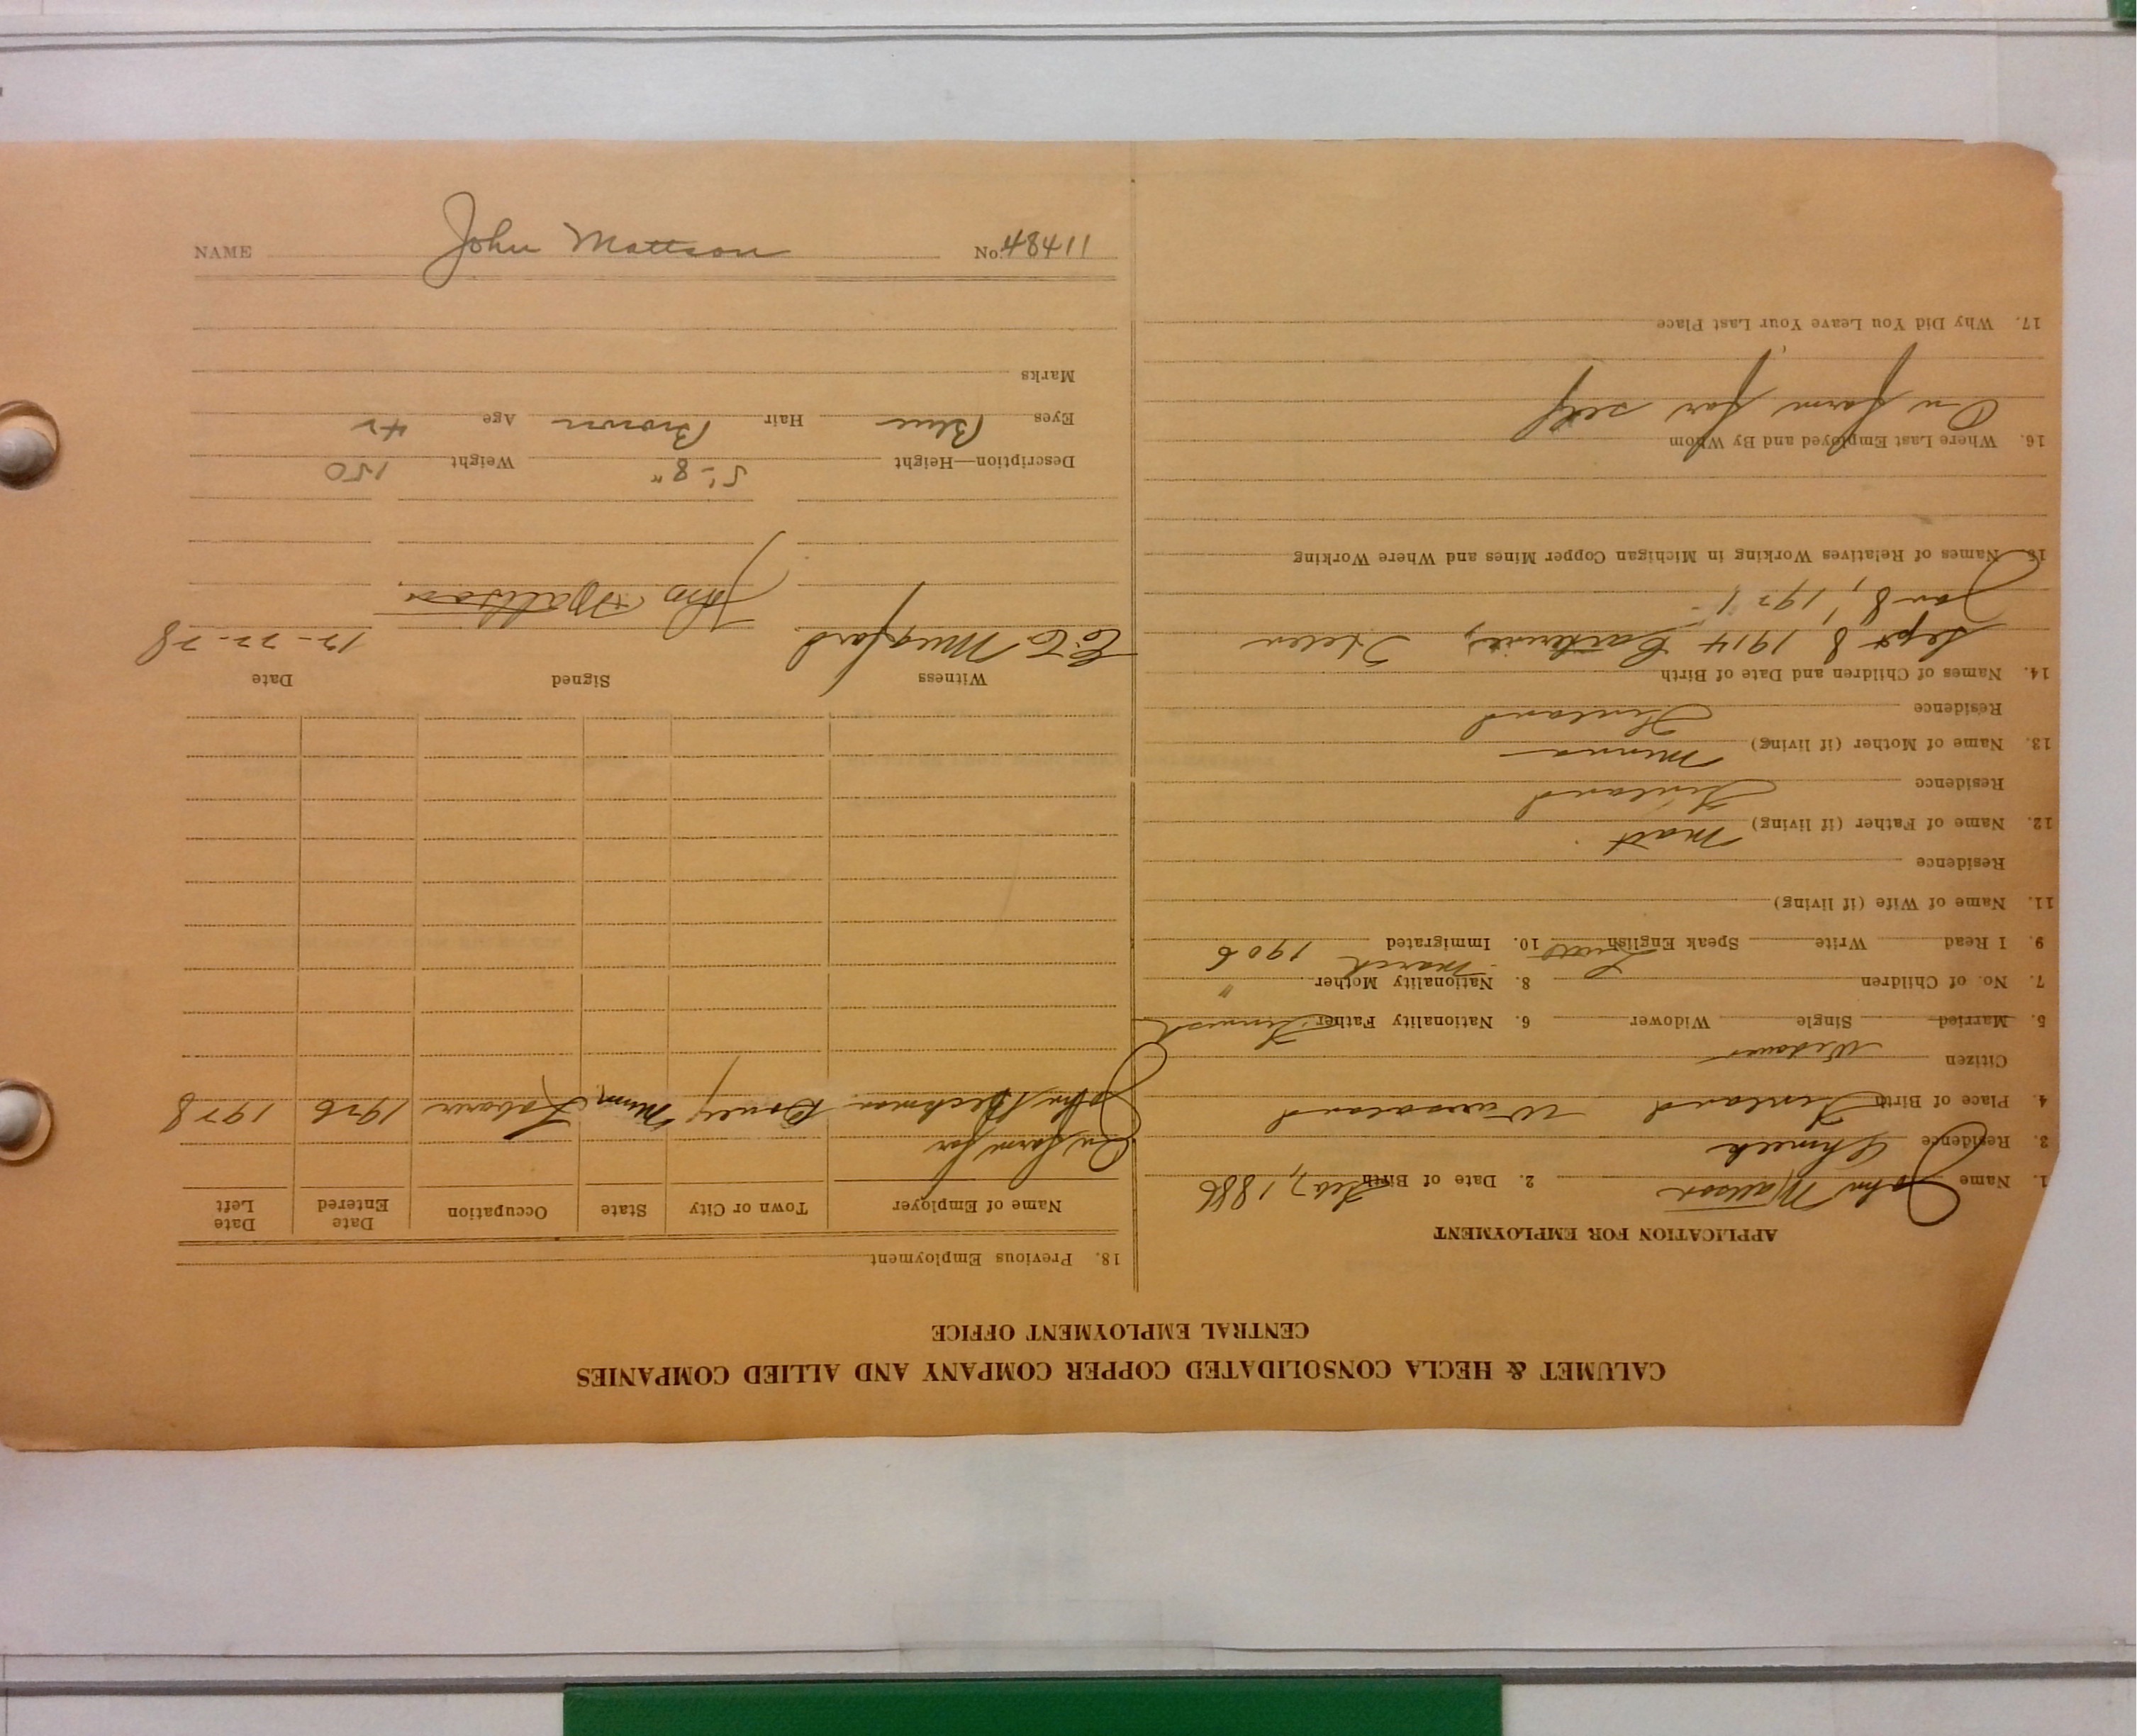 NAME John Mattson No. 48411
CALUMET & HECLA CONSOLIDATED COPPER COMPANY AND ALLIED COMPANIES
CENTRAL EMPLOYMENT OFFICE
APPLICATION FOR EMPLOYMENT
1. Name John Mattson 2. Date of Birth Feb 7, 1886
3. Residence Ahmeek
4. Place of Birth Finland
Citizen Widower
5. Married Single Widower 6. Nationality Father Finnish
7. No. of Children 8. Nationality Mother "
9. I Read Write Speak English 10. Immigrated March 1906
11. Name of Wife (if living)
Residence
12. Name of Father (if living) Matt
Residence Finland
13. Name of Mother (if living) Minna
Residence Finland
14. Names of Children and Date of Birth
Sept 8 1914 Helen
Jan 8, 1921
15. Names of Relatives Working in Michigan Copper Mines and Where Working
16. Where Last Employed and By Whom
On farm for self
17. Why Did You Leave Your Last Place
18. Previous Employment
Name of Employer Town or City State Occupation Date Entered Date Left
On farm for
John Heckman Minn Laborer 1926 1928
Witness Signed Date
Mugford John Mattson 12-22-28
Description—Height 5'-8" Weight 150
Eyes Blue Hair Brown Age 42
Marks